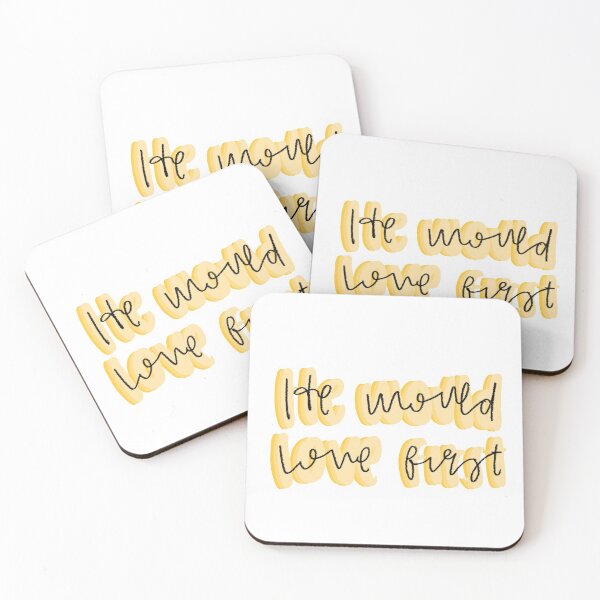 He would
He would
love first
He would
love
He would
love first